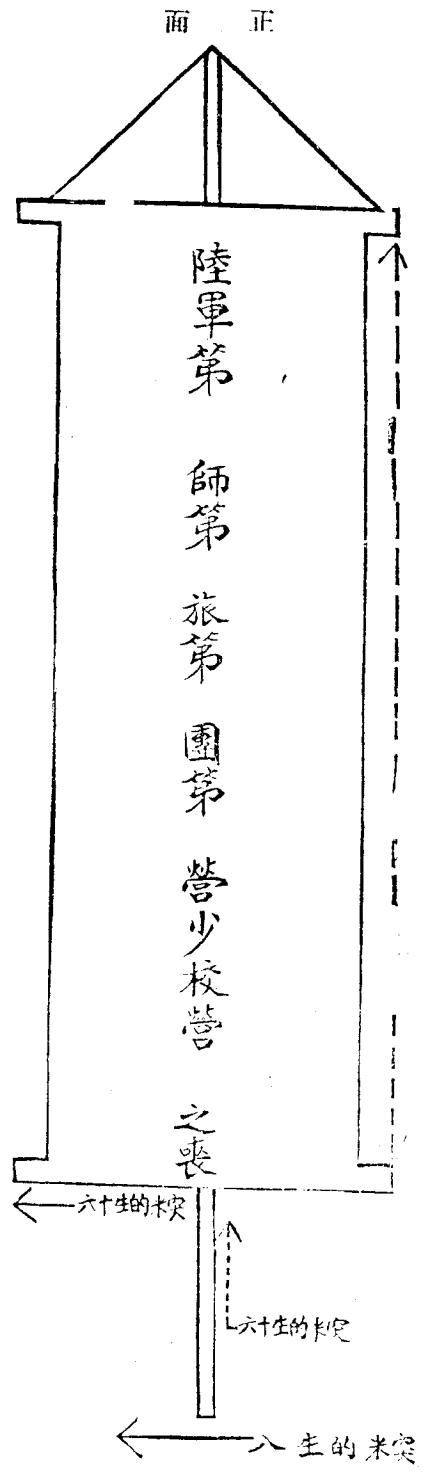 正面
陸軍第　師第　旅第　團第　營少校營　之喪
六十生的米突
六十生的米突
八生的米突